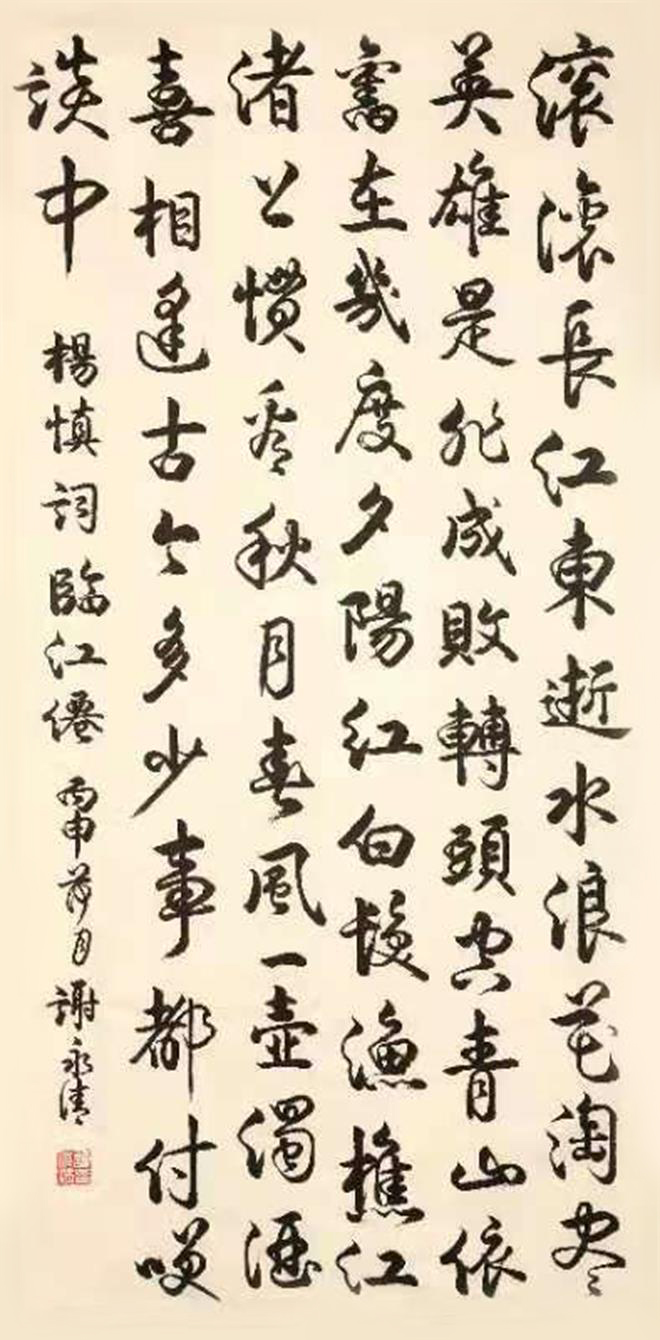 滚滚長江東逝水浪花淘尽
英雄是非成敗轉頭空青山依
舊在幾度夕陽紅白髮漁樵江
渚上慣看秋月春風一壺濁酒
喜相逢古今多少事都付唉
談中 楊慎詞臨江僊 丙申荷月 謝永清